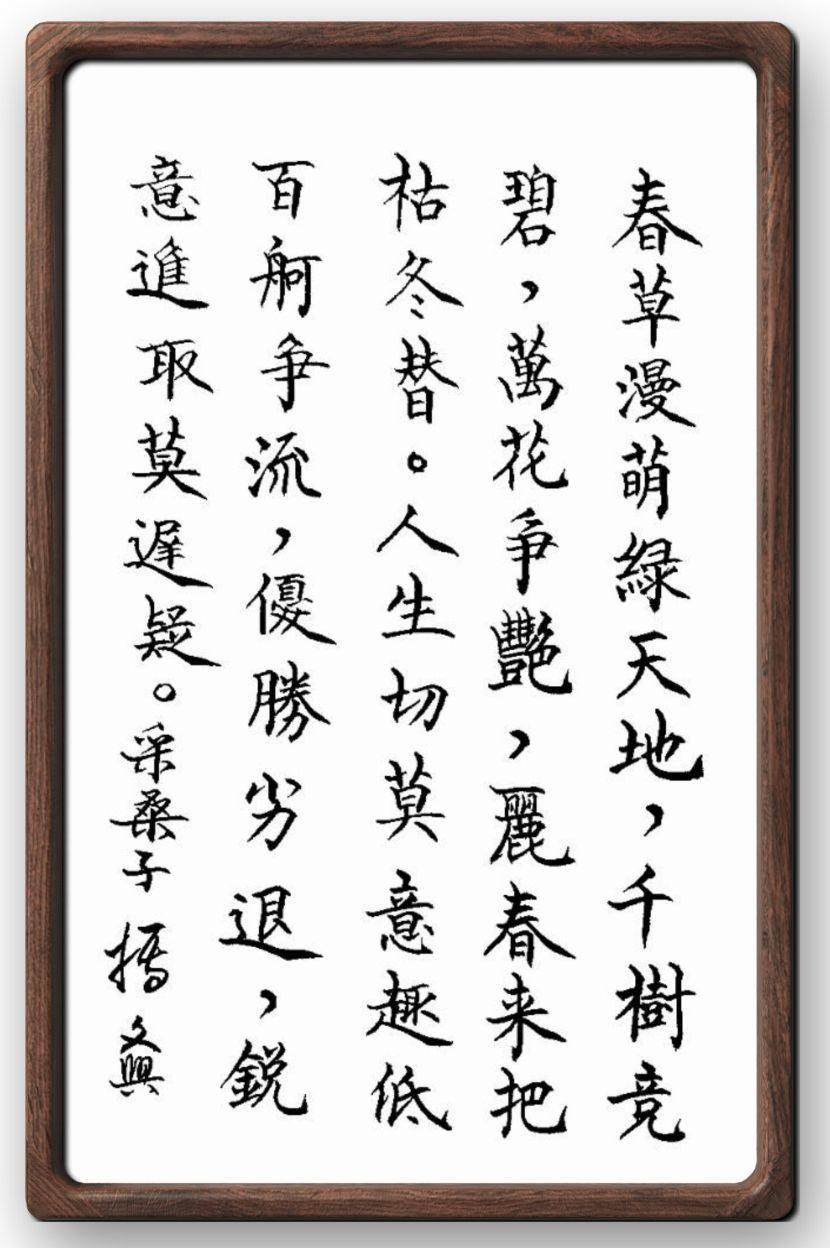 春草漫萌綠天地，千樹竞
碧，萬花爭艷，麗春来把
枯冬替。人生切莫意趣低
百舸争流，優勝劣退，銳
意進取莫遲疑。采桑子